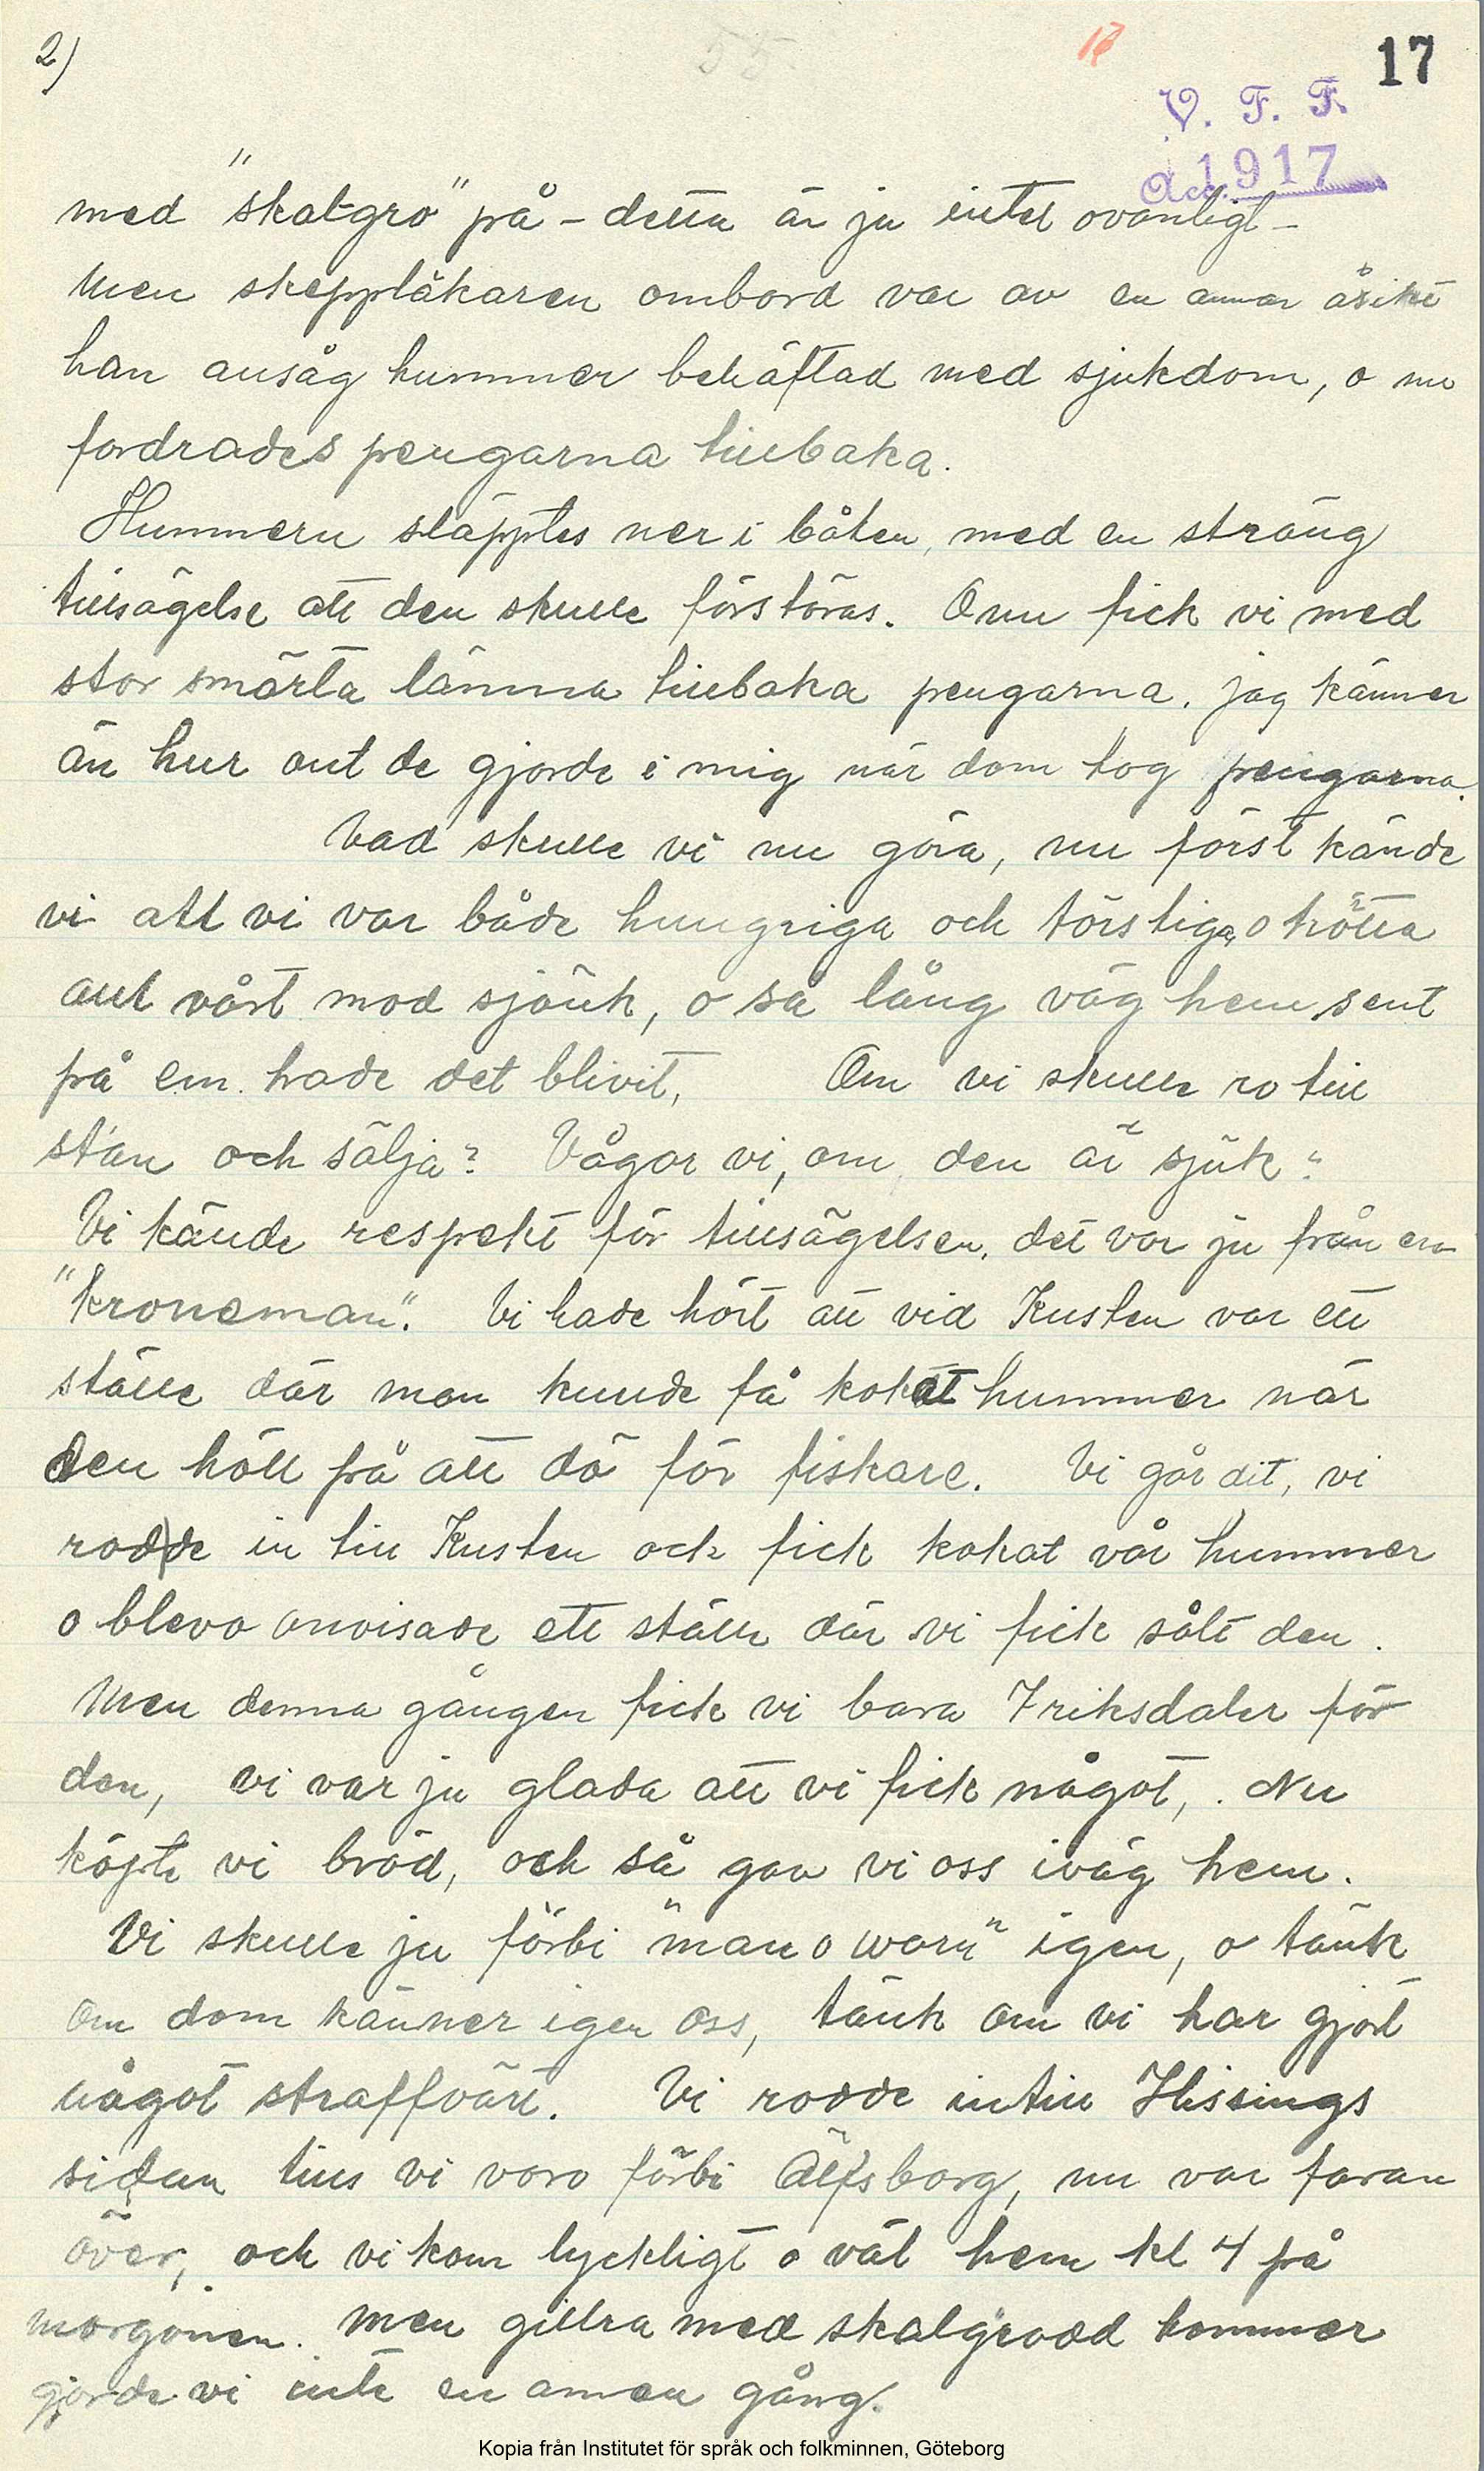 2)
17
V. F. F.
Acc. 1917
med "skalgro" på - detta är ju intet ovanligt -
Men skeppläkaren ombord var av en annan åsikt
han ansåg hummer behäftad med sjukdom, o nu
fordrades pengarna tillbaka.
Hummern släpptes ner i båten, med en sträng
tillsägelse att den skulle förstöras. O nu fick vi med
stor smärta lämna tillbaka pengarna. jag känner
än hur ont de gjorde i mig när dom tog pengarna.
Vad skulle vi nu göra, nu först kände
vi att vi var både hungriga och törstiga, o trötta
allt vårt mod sjönk, o så lång väg hem, sent
på em. hade det blivit, Om vi skulle ro till
stan och sälja? Vågar vi, om den är sjuk"
Vi kände respekt för tillsägelsen, det var ju från en
"kroneman". Vi hade hört att vid Kusten var ett
ställe där man kunde få kokat hummer när
den höll på att dö för fiskare. Vi går dit, vi
rodde in till Kusten och fick kokat vår hummer
o blevo anvisade ett ställe där vi fick sålt den.
Men denna gången fick vi bara 7 riksdaler för
den, vi var ju glada att vi fick något, . Nu
köpte vi bröd, och så gav vi oss iväg hem.
Vi skulle ju förbi "man o warn" igen, o tänk
om dom känner igen oss, tänk om vi har gjort
något straffvärt. Vi rodde intill Hissings
sidan tills vi voro förbi Älfsborg, nu var faran
över, och vi kom lyckligt o väl hem kl 4 på
morgonen. Men gillra med skalgrodd hommer
gjorde vi inte en annen gång.
Kopia från Institutet för språk och folkminnen, Göteborg